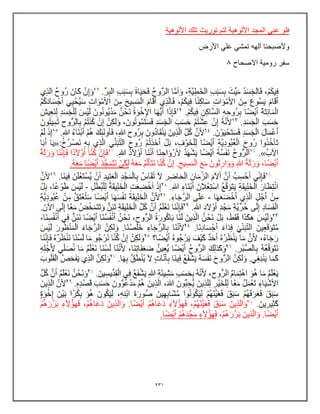 فلو عني المجد الألوهية لتم توريث تلك الألوهية
ولأصبحنا آلهه تمشي علي الأرض
سفر رومية الاصحاح ٨
فِيكُمْ، فَالْجَسَدُ مَيِّتٌ بِسَبَبِ الْخَطِيَّةِ، وَأَمَّا الرُّوحُ فَحَيَاةٌ بِسَبَبِ الْبِرِّ. وَإِنْ كَانَ رُوحُ الَّذِي
أَقَامَ يَسُوعَ مِنَ الأَمْوَاتِ سَاكِنًا فِيكُمْ، فَالَّذِي أَقَامَ الْمَسِيحَ مِنَ الأَمْوَاتِ سَيُحْيِي أَجْسَادَكُمُ
الْمَائِتَةَ أَيْضًا بِرُوحِهِ السَّاكِنِ فِيكُمْ. فَإِذًا أَيُّهَا الإِخْوَةُ نَحْنُ مَدْيُونُونَ لَيْسَ لِلْجَسَدِ لِنَعِيشَ
حَسَبَ الْجَسَدِ. لأَنَّهُ إِنْ عِشْتُمْ حَسَبَ الْجَسَدِ فَسَتَمُوتُونَ، وَلكِنْ إِنْ كُنْتُمْ بِالرُّوحِ تُمِيتُونَ
أَعْمَالَ الْجَسَدِ فَسَتَحْيَوْنَ. لأَنَّ كُلَّ الَّذِينَ يَنْقَادُونَ بِرُوحِ اللهِ، فَأُولئِكَ هُمْ أَبْنَاءُ اللهِ. إِذْ لَمْ
تَأْخُذُوا رُوحَ الْعُبُودِيَّةِ أَيْضًا لِلْخَوْفِ، بَلْ أَخَذْتُمْ رُوحَ التَّبَنِّي الَّذِي بِهِ نَصْرُخُ:«يَا أَبَا
الآبُ». اَلرُّوحُ نَفْسُهُ أَيْضًا يَشْهَدُ لأَرْوَاحِنَا أَنَّنَا أَوْلاَدُ اللهِ. فَإِنْ كُنَّا أَوْلاَدًا فَإِنَّنَا وَرَثَةٌ
أَيْضًا، وَرَثَةُ اللهِ وَوَارِثُونَ مَعَ الْمَسِيحِ. إِنْ كُنَّا نَتَأَلَّمُ مَعَهُ لِكَيْ نَتَمَجَّدَ أَيْضًا مَعَهُ.
فَإِنِّي أَحْسِبُ أَنَّ آلاَمَ الزَّمَانِ الْحَاضِرِ لاَ تُقَاسُ بِالْمَجْدِ الْعَتِيدِ أَنْ يُسْتَعْلَنَ فِينَا. لأَنَّ
انْتِظَارَ الْخَلِيقَةِ يَتَوَقَّعُ اسْتِعْلاَنَ أَبْنَاءِ اللهِ. إِذْ أُخْضِعَتِ الْخَلِيقَةُ لِلْبُطْلِ ­ لَيْسَ طَوْعًا، بَلْ
مِنْ أَجْلِ الَّذِي أَخْضَعَهَا ­ عَلَى الرَّجَاءِ. لأَنَّ الْخَلِيقَةَ نَفْسَهَا أَيْضًا سَتُعْتَقُ مِنْ عُبُودِيَّةِ
الْفَسَادِ إِلَى حُرِّيَّةِ مَجْدِ أَوْلاَدِ اللهِ. فَإِنَّنَا نَعْلَمُ أَنَّ كُلَّ الْخَلِيقَةِ تَئِنُّ وَتَتَمَخَّضُ مَعًا إِلَى الآنَ.
وَلَيْسَ هكَذَا فَقَطْ، بَلْ نَحْنُ الَّذِينَ لَنَا بَاكُورَةُ الرُّوحِ، نَحْنُ أَنْفُسُنَا أَيْضًا نَئِنُّ فِي أَنْفُسِنَا،
مُتَوَقِّعِينَ التَّبَنِّيَ فِدَاءَ أَجْسَادِنَا. لأَنَّنَا بِالرَّجَاءِ خَلَصْنَا. وَلكِنَّ الرَّجَاءَ الْمَنْظُورَ لَيْسَ
رَجَاءً، لأَنَّ مَا يَنْظُرُهُ أَحَدٌ كَيْفَ يَرْجُوهُ أَيْضًا؟ وَلكِنْ إِنْ كُنَّا نَرْجُو مَا لَسْنَا نَنْظُرُهُ فَإِنَّنَا
نَتَوَقَّعُهُ بِالصَّبْرِ. وَكَذلِكَ الرُّوحُ أَيْضًا يُعِينُ ضَعَفَاتِنَا، لأَنَّنَا لَسْنَا نَعْلَمُ مَا نُصَلِّي لأَجْلِهِ
كَمَا يَنْبَغِي. وَلكِنَّ الرُّوحَ نَفْسَهُ يَشْفَعُ فِينَا بِأَنَّاتٍ لاَ يُنْطَقُ بِهَا. وَلكِنَّ الَّذِي يَفْحَصُ الْقُلُوبَ
يَعْلَمُ مَا هُوَ اهْتِمَامُ الرُّوحِ، لأَنَّهُ بِحَسَبِ مَشِيئَةِ اللهِ يَشْفَعُ فِي الْقِدِّيسِينَ. وَنَحْنُ نَعْلَمُ أَنَّ كُلَّ
الأَشْيَاءِ تَعْمَلُ مَعًا لِلْخَيْرِ لِلَّذِينَ يُحِبُّونَ اللهَ، الَّذِينَ هُمْ مَدْعُوُّونَ حَسَبَ قَصْدِهِ. لأَنَّ الَّذِينَ
سَبَقَ فَعَرَفَهُمْ سَبَقَ فَعَيَّنَهُمْ لِيَكُونُوا مُشَابِهِينَ صُورَةَ ابْنِهِ، لِيَكُونَ هُوَ بِكْرًا بَيْنَ إِخْوَةٍ
كَثِيرِينَ. وَالَّذِينَ سَبَقَ فَعَيَّنَهُمْ، فَهؤُلاَءِ دَعَاهُمْ أَيْضًا. وَالَّذِينَ دَعَاهُمْ، فَهؤُلاَءِ بَرَّرَهُمْ
أَيْضًا. وَالَّذِينَ بَرَّرَهُمْ، فَهؤُلاَءِ مَجَّدَهُمْ أَيْضًا.
٢٣١